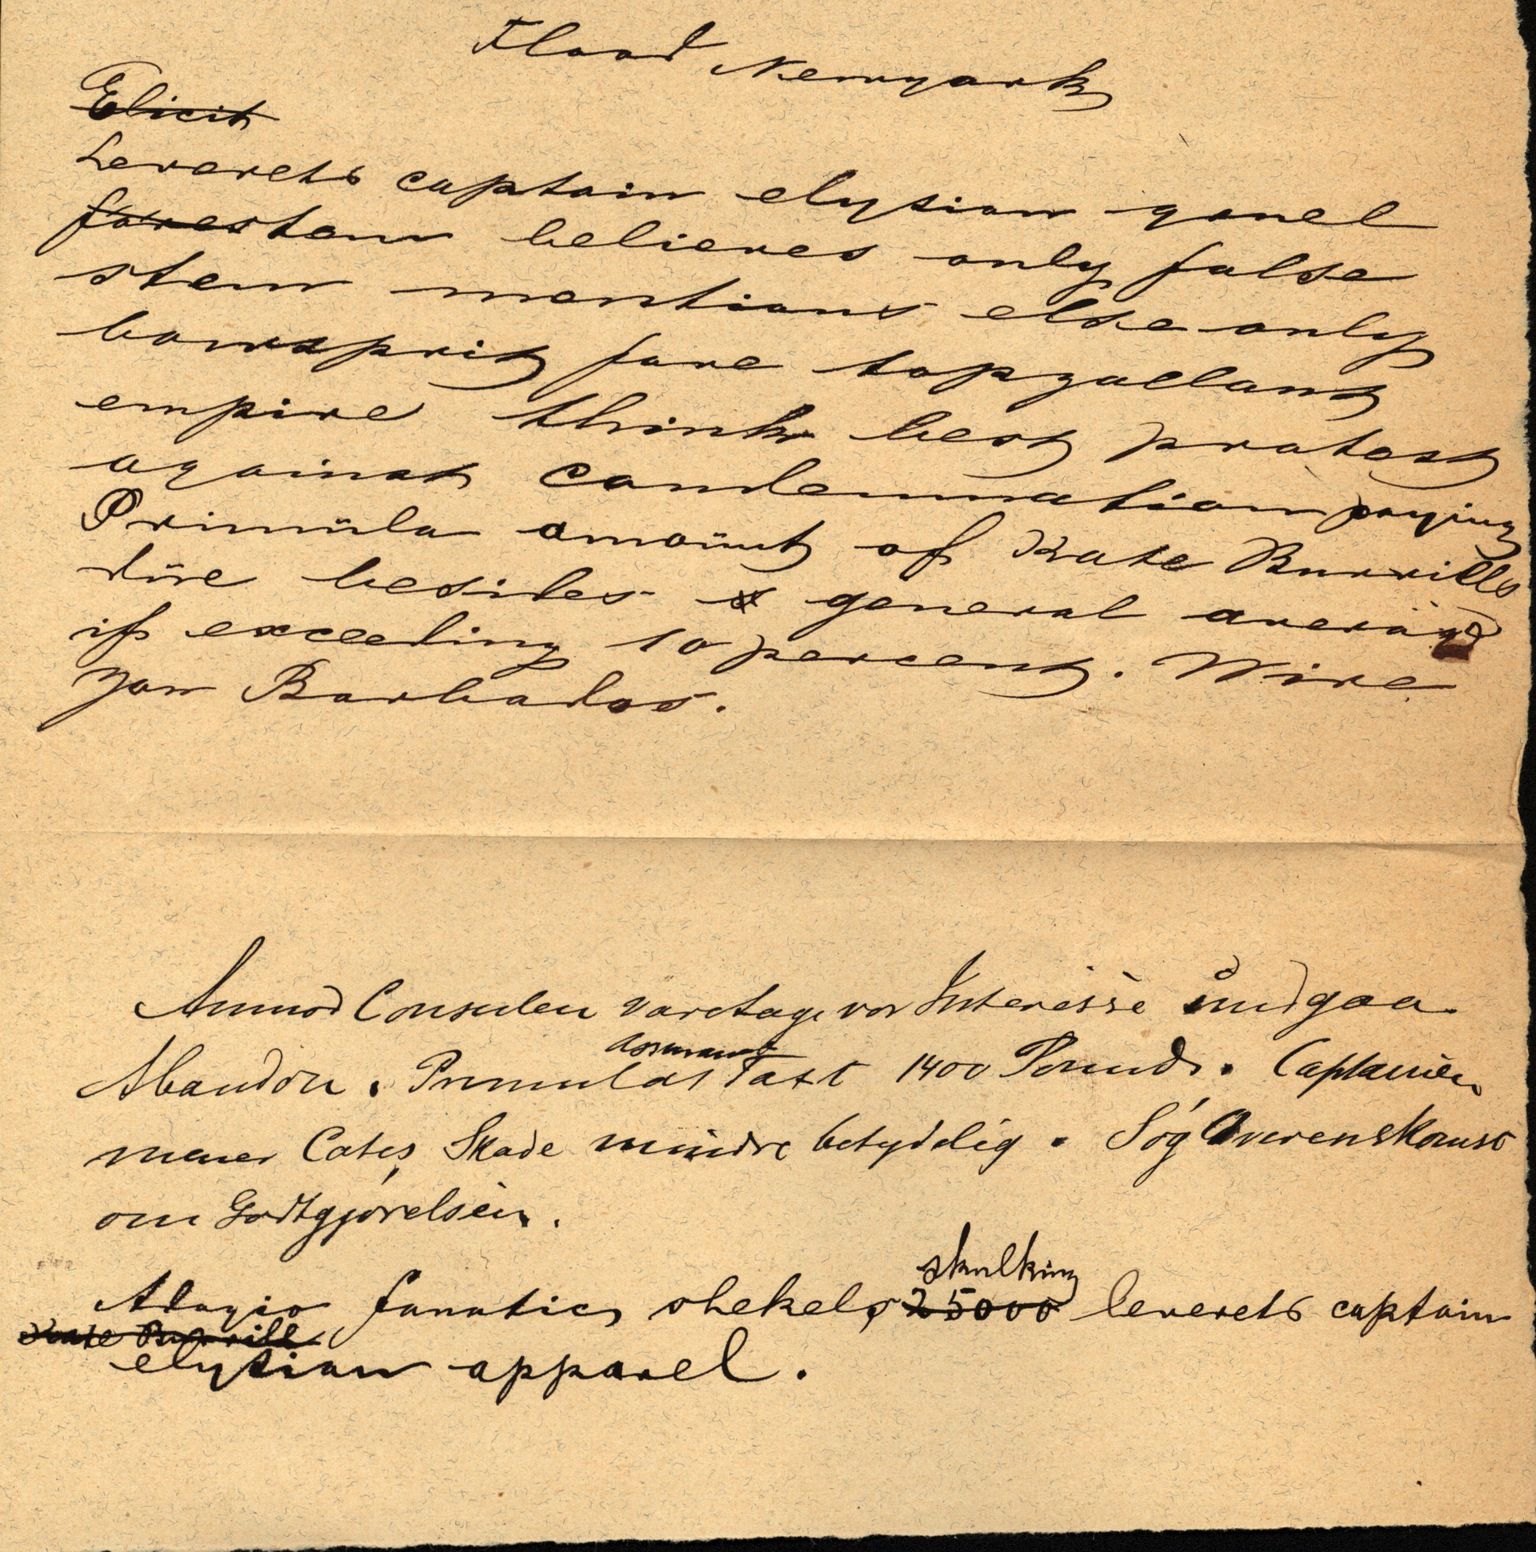 Flood Newyork
Elicit
Leverets captain elysian gavel
forestem believes only false
stem mentions else only
bowsprit fore topgallant
empire think best protest
against condemnation paying
Primula amount of Kate Burrills
due besides general average
if exceeding 10 percent. Wire
you Barbados.
Anmod Consulen varetage vor Interesse undgaa
Abandon. Primulas Taxt 1400 Pounds. Captainen
mener Cates Skade mindre betydelig. Søg Overenskomst
om Godtgjørelsen.
skulking
Adagio fanatic shekels 25000 leverets captain
Kate Burrill
elysian apparel.